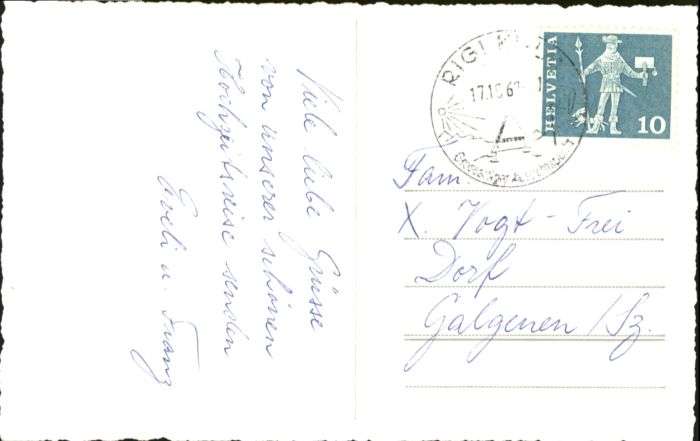 Viele liebe Grüsse
von unserer schönen
Hochzeitsreise senden
Eveli u. Franz
RIGI
17.10.6
HELVETIA
10
Fam.
X. Vogt - Frei
Dorf
Galgenen /Sz.